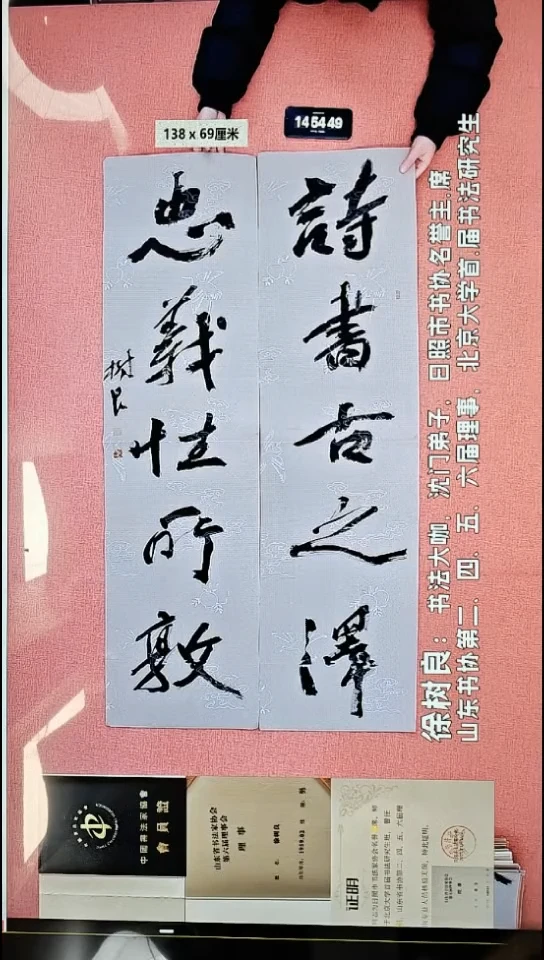 138 x 69厘米
14:54:49
詩書古之澤
忠義性所敦
樹良
徐树良：书法大咖、沈门弟子、日照市书协名誉主席
山东书协第二、四、五、六届理事、北京大学首届书法研究生
中國書法家協會
會員證
山东省书法家协会
第六届理事会
理事
证明